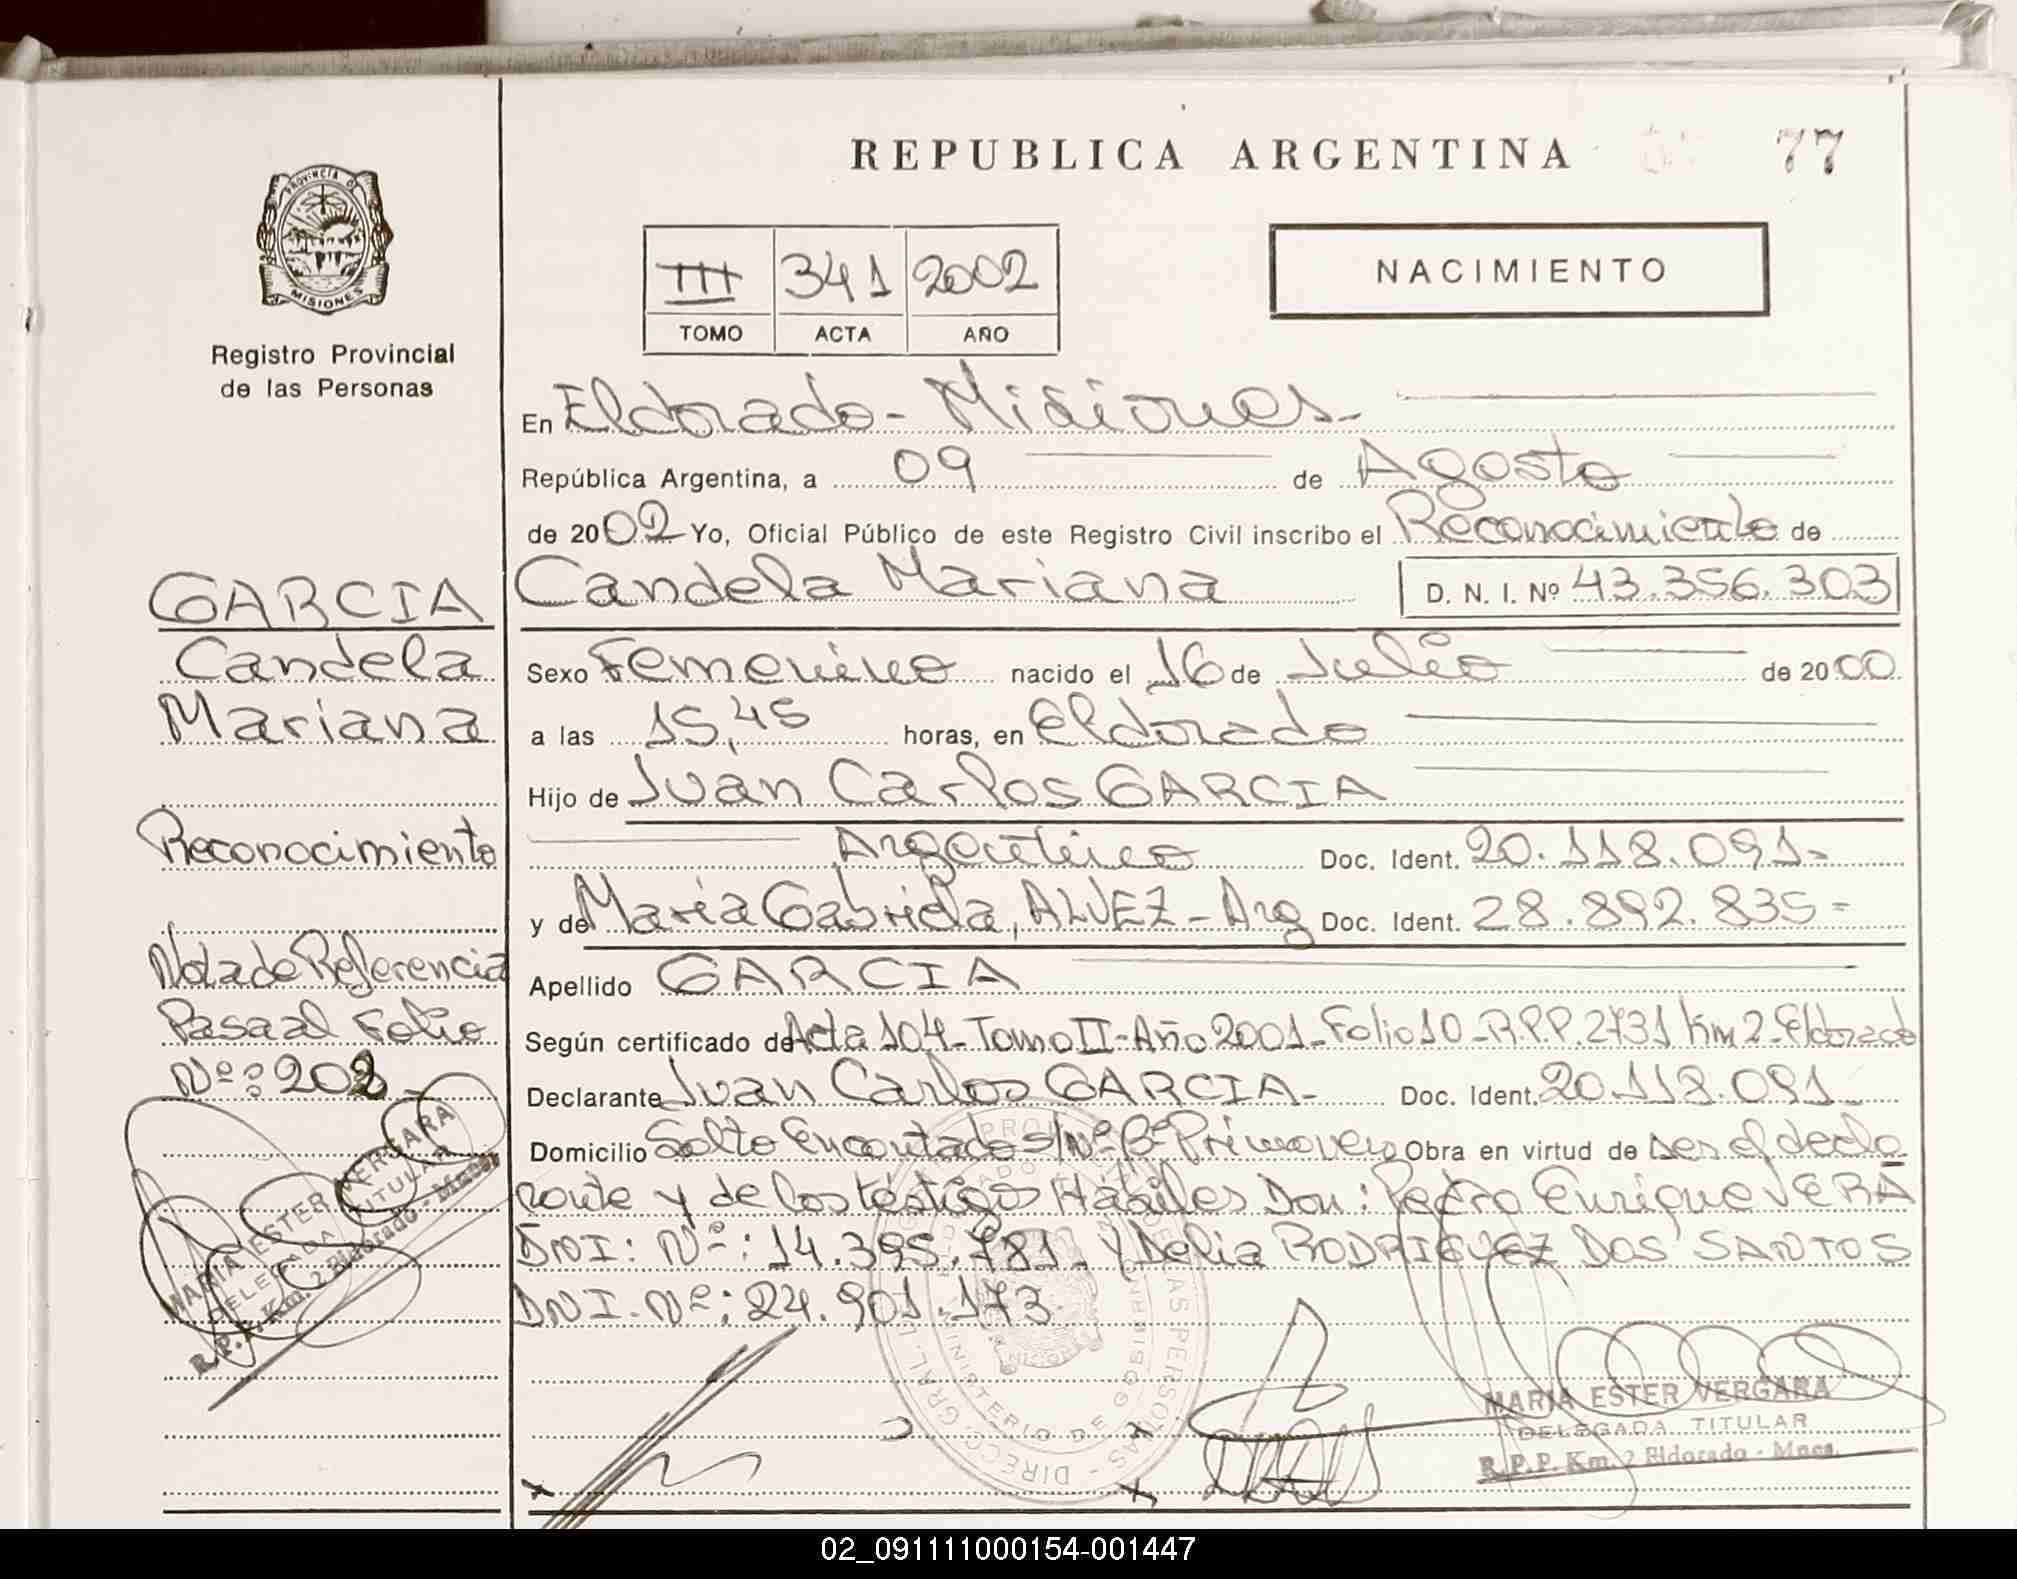 REPUBLICA ARGENTINA
77
PROVINCIA DE
MISIONES
Registro Provincial
de las Personas
III 341 2002
TOMO ACTA AÑO
NACIMIENTO
En Eldorado - Misiones -
República Argentina, a 09 de Agosto
de 2002 Yo, Oficial Público de este Registro Civil inscribo el Reconocimiento de
Candela Mariana D. N. I. Nº 43.356.303
Sexo Femenino nacido el 16 de Julio de 2000
a las 15,45 horas, en Eldorado
Hijo de Juan Carlos GARCIA
Argentino Doc. Ident. 20.118.091-
y de Maria Gabriela, ALVEZ - Arg Doc. Ident. 28.892.835=
Apellido GARCIA
Según certificado de Acta 104- Tomo II- Año 2001- Folio 10 - R.P.P. 2731 Km 2 - Eldorado
Declarante Juan Carlos GARCIA- Doc. Ident. 20.118.091-
Domicilio Salto Encantado s/Nº Bº Primavera Obra en virtud de ser el decla
rante y de los testigos Hábiles Don: Pedro Enrique VERA
DNI: Nº: 14.395.781 y Delia RODRIGUEZ DOS SANTOS
DNI. Nº: 24.901.173
GARCIA
Candela
Mariana
Reconocimiento
Nota de Referencia
Pasa al Folio
Nº: 202
MARIA ESTER VERGARA
DELEGADA TITULAR
R.P.P. Km. 2 Eldorado - Mnes.
MARIA ESTER VERGARA
DELEGADA TITULAR
R.P.P. Km. 2 Eldorado - Mnes.
MINISTERIO DE GOBIERNO
02_091111000154-001447